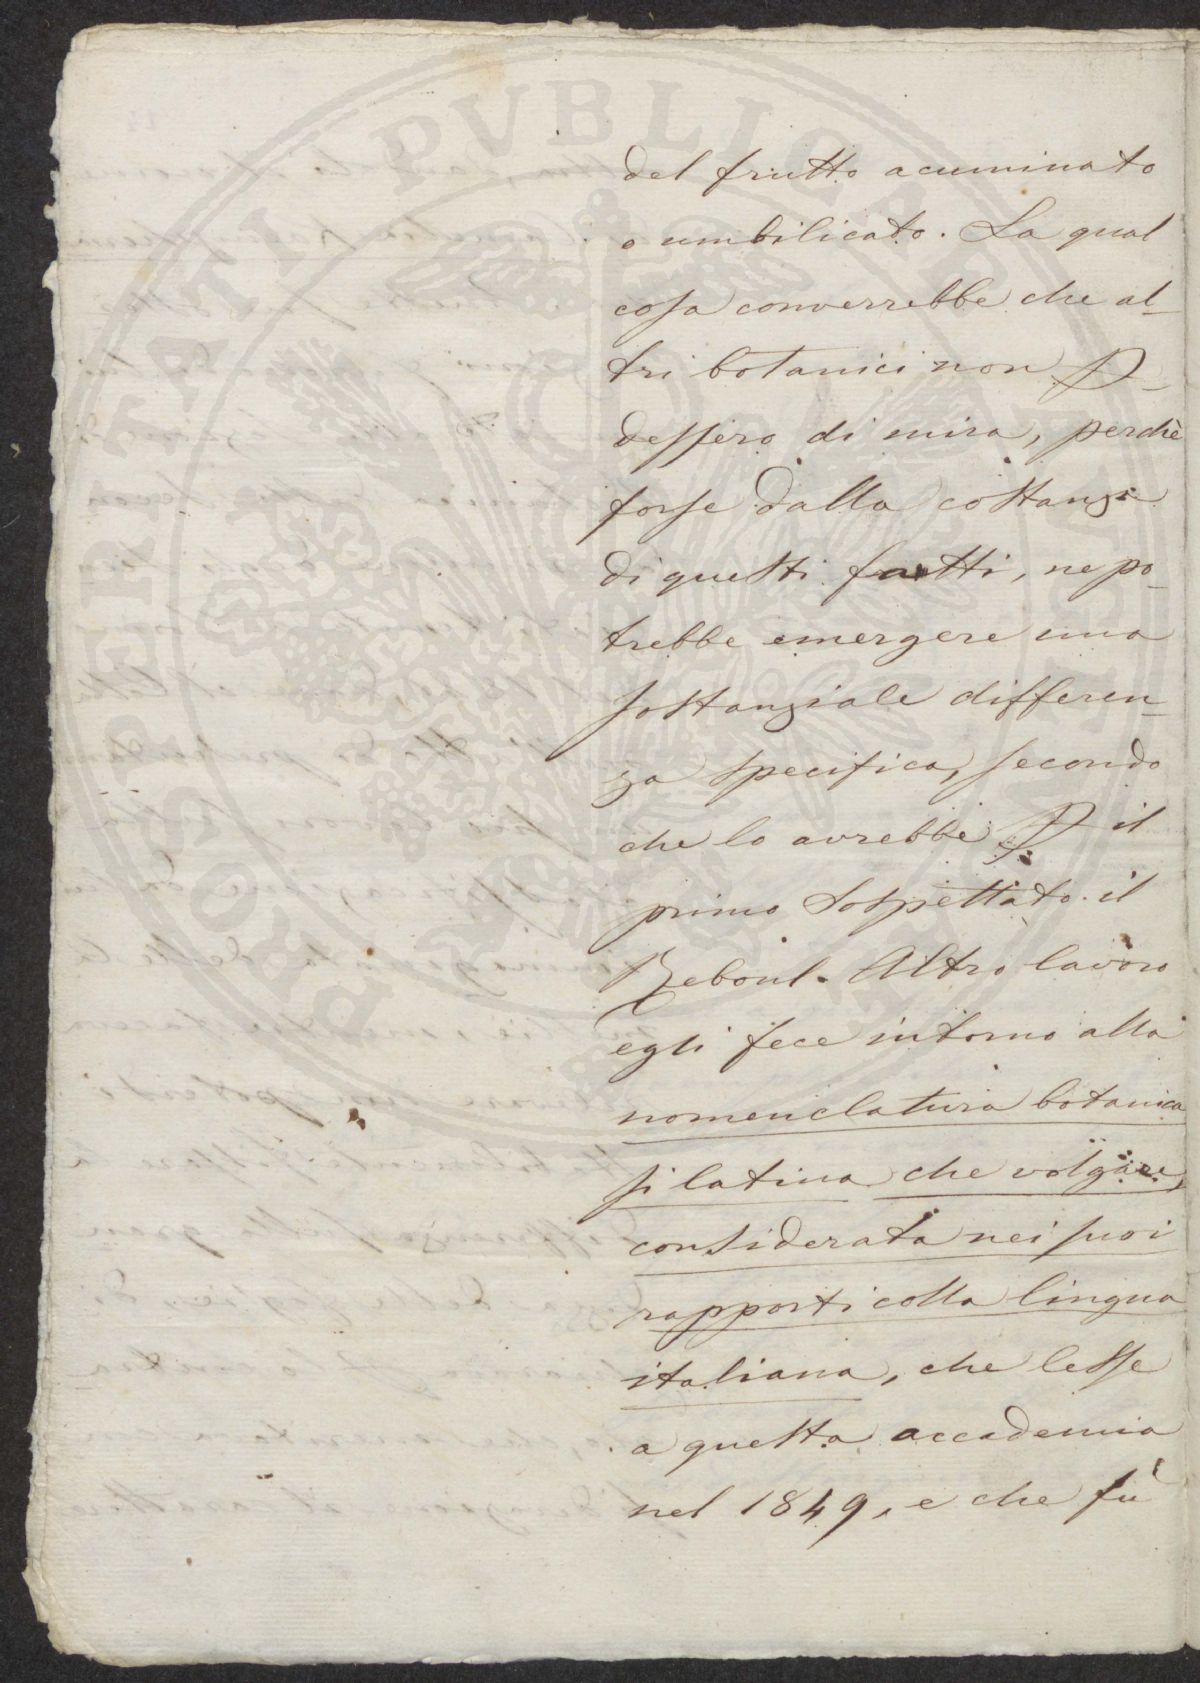 del frutto acuminato
o umbilicato. La qual
cosa converrebbe che al-
tri botanici non p-
dessero di mira, perchè
forse dalla costanza
di questi fatti, ne po-
trebbe emergere una
sostanziale differen-
za specifica, secondo
che lo avrebbe p il
primo sospettato il
Reboul. Altro lavoro
egli fece intorno alla
nomenclatura botanica
si latina che volgare,
considerata nei suoi
rapporti colla lingua
italiana, che lesse
a questa accademia
nel 1849, e che fù